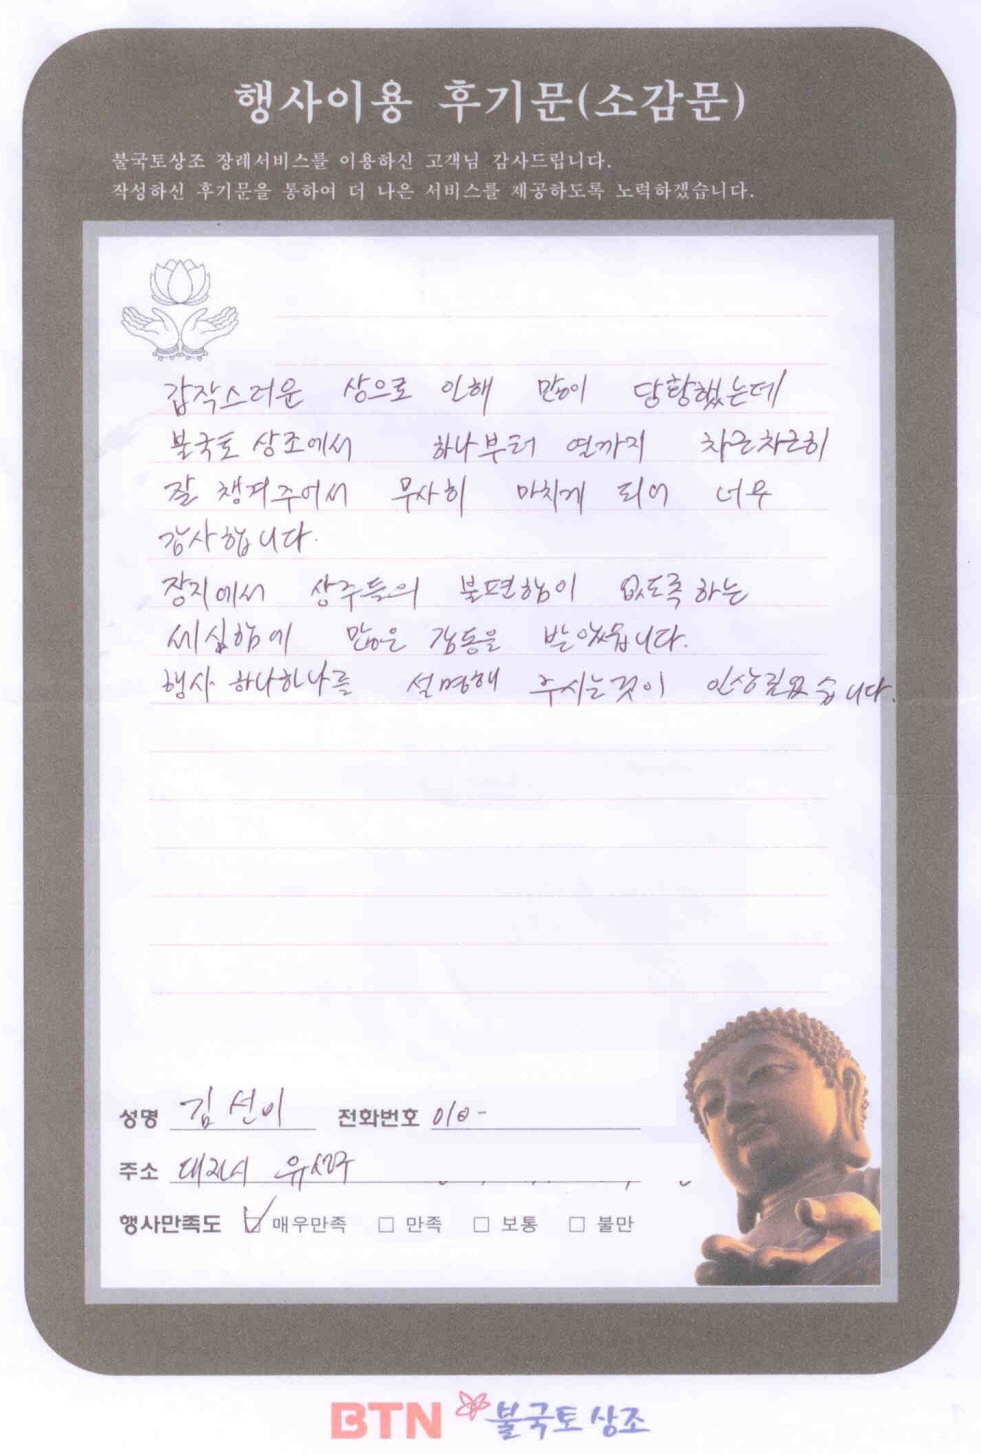 행사이용 후기문(소감문)
불국토상조 장례서비스를 이용하신 고객님 감사드립니다.
작성하신 후기문을 통하여 더 나은 서비스를 제공하도록 노력하겠습니다.
갑작스러운 상으로 인해 많이 당황했는데
불국토 상조에서 하나부터 열까지 차근차근히
잘 챙겨주어서 무사히 마치게 되어 너무
감사합니다.
장지에서 상주들의 불편함이 없도록 하는
세심함에 많은 감동을 받았습니다.
행사 하나하나를 설명해 주시는것이 인상깊었습니다.
성명 김선이 전화번호 010-
주소 대전시 유성구
행사만족도 매우만족 만족 보통 불만
BTN 불국토상조